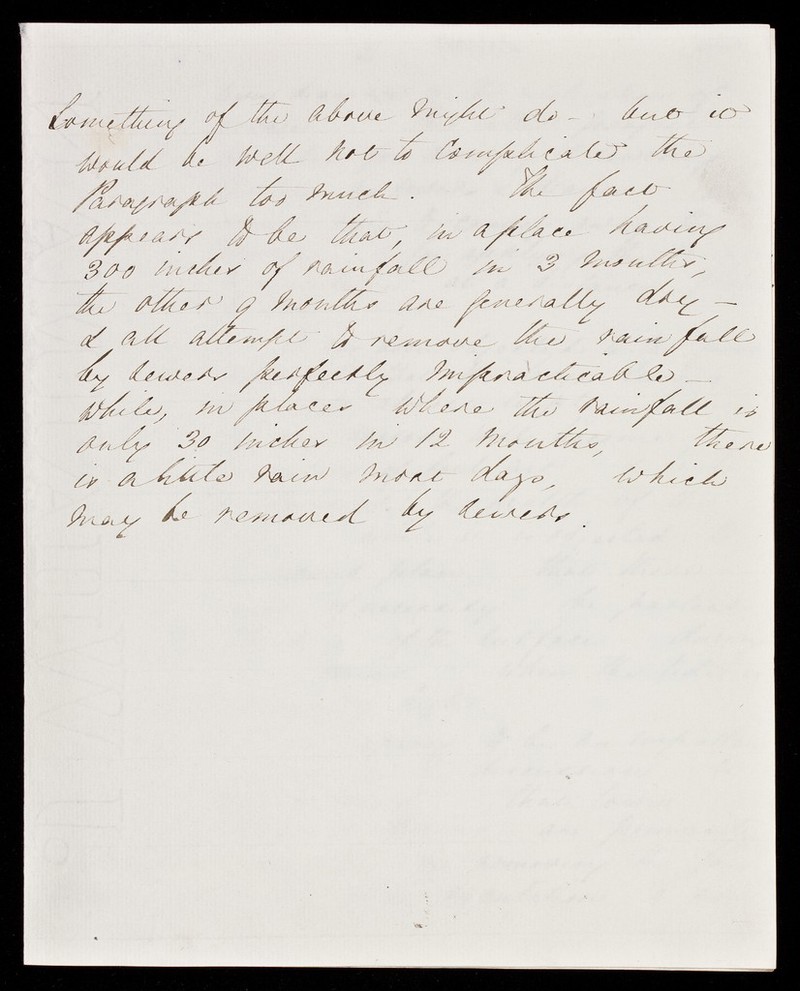 Something of the above might do - but it
would be well not to complicate the
Paragraph too much. The fact
appears to be that, in a place having
300 inches of rainfall in 3 months,
the other 9 months are generally dry -
& all attempt to remove the rain fall
by sewers perfectly impracticable -
while, in places where the rainfall is
only 30 inches in 12 months, there
is a little rain most days, which
may be removed by sewers.